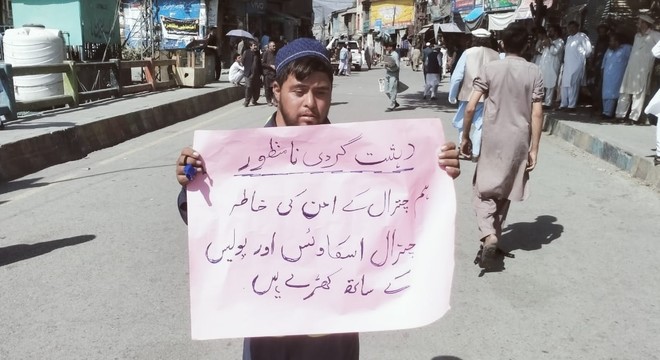 دہشت گردی نامنظور
ہم چترال کے امن کی خاطر
چترال اسکاوٹس اور پولیس
کے ساتھ کھڑے ہیں